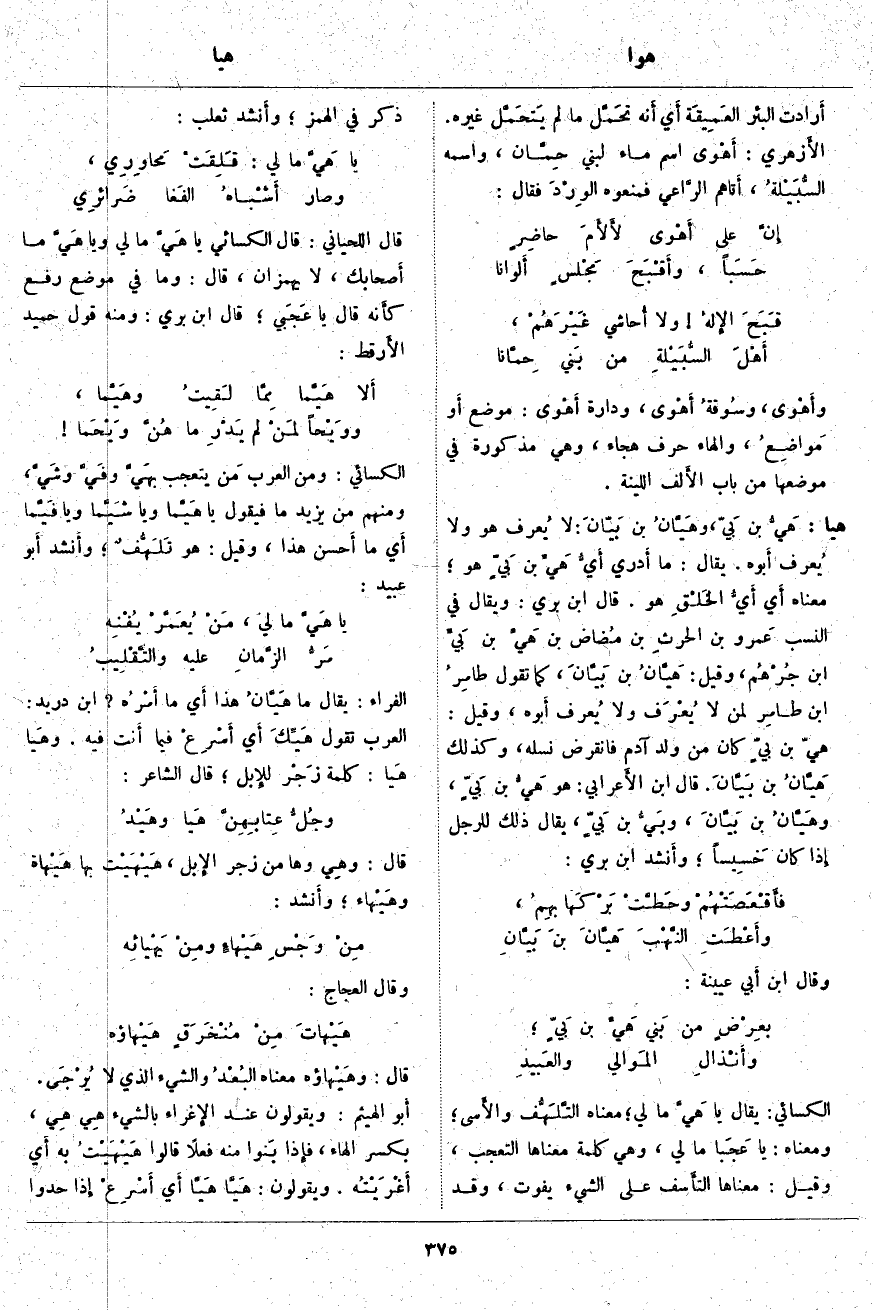 هوا
هيا
أرادت البئر العَمِيقةَ أي أنه تحَمَّل ما لم يَتحَمَّل غيره.
الأزهري : أَهْوى اسم ماء لبني حِمَّان ، واسمه
السُّبَيْلةُ ، أتاهم الرَّاعي فمنعوه الوِرْدَ فقال :
إنَّ على أَهْوى لأَلأَمَ حاضِرٍ
حَسَباً ، وأَقْبَحَ مَجْلسٍ أَلوانا
قَبَحَ الإلهُ ! ولا أُحاشي غَيْرَهُمْ ،
أَهْلَ السُّبَيْلةِ من بَني حِمَّانا
وأهْوى، وسُوقةُ أَهْوى، ودارة أَهْوى : موضع أو
مَواضِعُ ، والهاء حرف هجاء ، وهي مذكورة في
موضعها من باب الألف اللينة .
هيا : هَيُّ بن بَيّ، وهَيَّانُ بن بَيَّانَ: لا يُعرف هو ولا
يُعرف أبوه . يقال : ما أدري أَيُّ هَيّ بن بَيّ هو ؛
معناه أي أَيُّ الخَلْقِ هو . قال ابن بري : ويقال في
النسب عَمرو بن الحرث بن مُضاض بن هَيّ بن بَيّ
ابن جُرْهُم، وقيل: هَيَّانُ بن بَيَّانَ ، كما تقول طامِرُ
ابن طامِر لمن لا يُعْرَف ولا يُعرف أبوه ، وقيل :
هيّ بن بَيّ كان من ولد آدم فانقرض نسله، وكذلك
هَيَّانُ بن بَيَّانَ. قال ابن الأعرابي: هو هَيُّ بن بَيّ ،
وهَيَّانُ بن بَيَّانَ ، وبَيُّ بن بَيّ ، يقال ذلك للرجل
إذا كان خَسِيساً ؛ وأنشد ابن بري :
فأَقْعَصَتْهُمْ وحَطَّتْ بَرْكَها بِهِمُ ،
وأَعْطَتِ النَّهْبَ هَيَّانَ بنَ بَيَّانِ
وقال ابن أبي عيينة :
بعِرْضٍ من بَني هَيّ بن بَيّ ؛
وأَنْذالِ المَوالي والعَبيدِ
الكسائي: يقال يا هَيَّ ما لي؛ معناه التَّلَهُّف والأسى؛
ومعناه : يا عَجَبا ما لي ، وهي كلمة معناها التعجب ،
وقيل : معناها التأسف على الشيء يفوت ، وقد
ذكر في الهمز ؛ وأنشد ثعلب :
يا هَيَّ ما لي : قَلِقَتْ مَحاوِرِي ،
وصار أَشْباهُ الفَغا ضَرائرِي
قال اللحياني : قال الكسائي يا هَيَّ ما لي ويا هَيَّ ما
أصحابك ، لا يهمزان ، قال : وما في موضع رفع
كأنه قال يا عَجَبي ؛ قال ابن بري : ومنه قول حميد
الأرقط :
ألا هَيَّما مِمَّا لَقِيتُ وهَيَّما ،
ووَيْحاً لمَنْ لم يَدْرِ ما هُنَّ وَيْحَما !
الكسائي : ومن العرب مَن يتعجب بهَيَّ وفَيَّ وشَيَّ،
ومنهم من يزيد ما فيقول يا هَيَّما ويا شَيَّما ويا فَيَّما
أي ما أحسن هذا ، وقيل : هو تَلَهُّفٌ ؛ وأنشد أبو
عبيد :
يا هَيَّ ما ليَ ، مَنْ يُعَمَّرْ يُفْنِه
مَرُّ الزَّمانِ عليه والتَّقْلِيبُ
الفراء : يقال ما هَيَّانُ هذا أي ما أَمْرُه ? ابن دريد:
العرب تقول هَيَّكَ أي أَسْرِعْ فيما أنت فيه . وهَيا
هَيا : كلمة زَجْر للإبل ؛ قال الشاعر :
وجُلُّ عِتابِهِنَّ هَيا وهَيْدُ
قال : وهِي وها من زجر الإبل ، هَيْهَيْت بها هَيْهاة
وهَيْهاء ؛ وأنشد :
مِنْ وَجْسِ هَيْهاءٍ ومِنْ يَهْيائِه
وقال العجاج :
هَيْهاتَ مِنْ مُنْخَرَقٍ هَيْهاؤه
قال : وهَيْهاؤه معناه البُعْدُ والشيء الذي لا يُرْجَى.
أبو الهيثم : ويقولون عند الإغراء بالشيء هِي هِي ،
بكسر الهاء ، فإذا بَنَوا منه فعلًا قالوا هَيْهَيْتُ به أي
أَغْرَيْتُه . ويقولون : هَيَّا هَيَّا أي أَسْرِعْ إذا حدوا
٣٧٥